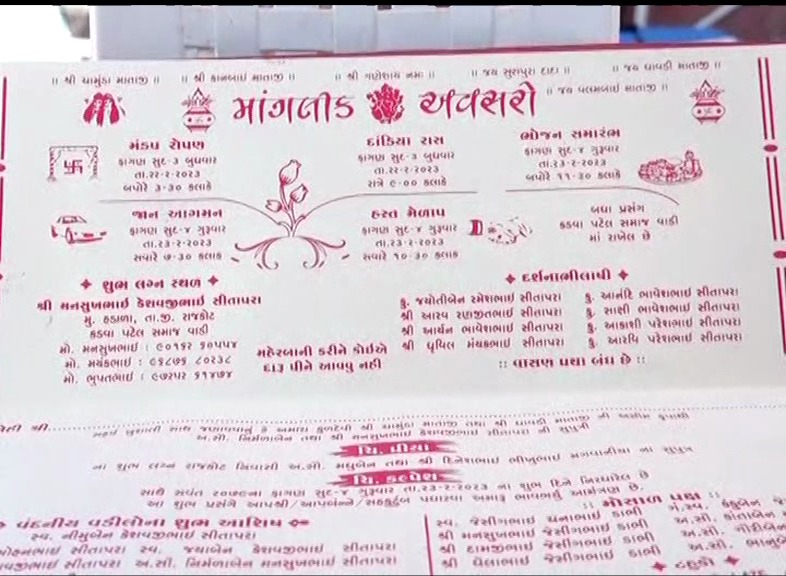 ॥ શ્રી ચામુંડા માતાજી ॥ ॥ શ્રી કાનબાઈ માતાજી ॥ ॥ શ્રી ગણેશાય નમઃ ॥ ॥ જય સુરાપુરા દાદા ॥ ॥ જય ધાવડી માતાજી ॥
॥ જય વલમબાઈ માતાજી ॥
માંગલીક અવસરો
મંડપ રોપણ
ફાગણ સુદ-૩ બુધવાર
તા.૨૨-૨-૨૦૨૩
બપોરે ૩-૩૦ કલાકે
દાંડિયા રાસ
ફાગણ સુદ-૩ બુધવાર
તા.૨૨-૨-૨૦૨૩
રાત્રે ૯-૦૦ કલાકે
ભોજન સમારંભ
ફાગણ સુદ-૪ ગુરૂવાર
તા.૨૩-૨-૨૦૨૩
બપોરે ૧૧-૩૦ કલાકે
જાન આગમન
ફાગણ સુદ-૪ ગુરૂવાર
તા.૨૩-૨-૨૦૨૩
સવારે ૭-૩૦ કલાકે
હસ્ત મેળાપ
ફાગણ સુદ-૪ ગુરૂવાર
તા.૨૩-૨-૨૦૨૩
સવારે ૧૦-૩૦ કલાકે
બધા પ્રસંગ
કડવા પટેલ સમાજ વાડી
માં રાખેલ છે
શુભ લગ્ન સ્થળ
શ્રી મનસુખભાઈ કેશવજીભાઈ સીતાપરા
મુ. હડાળા, તા.જી. રાજકોટ
કડવા પટેલ સમાજ વાડી
મો. મનસુખભાઈ : ૯૦૧૬૨ ૬૦૫૫૪
મો. મયંકભાઈ : ૯૬૮૭૬ ૮૦૨૩૮
મો. ભુપતભાઈ : ૯૭૨૫૨ ૬૧૪૭૪
મહેરબાની કરીને કોઈએ
દારૂ પીને આવવુ નહી
દર્શનાભીલાષી
કુ. જયોતીબેન રમેશભાઈ સીતાપરા
શ્રી આરવ રણજીતભાઈ સીતાપરા
શ્રી આર્યન ભાવેશભાઈ સીતાપરા
શ્રી ધૃવિલ મયંકભાઈ સીતાપરા
કુ. ભાવેશભાઈ સીતાપરા
કુ. સાક્ષી ભાવેશભાઈ સીતાપરા
કુ. આકાશી પરેશભાઈ સીતાપરા
કુ. આરવિ પરેશભાઈ સીતાપરા
:: વાસણ પ્રથા બંધ છે ::
સહર્ષ ખુશાલી સાથ જણાવવાનુ કે અમારા કુળદેવી શ્રી ચામુંડા માતાજી તથા શ્રી ધાવડી માતાજી ની અસીમ કૃપાથી
અ.સૌ. નિર્મળાબેન તથા શ્રી મનસુખભાઈ કેશવજીભાઈ સીતાપરા ની સુપુત્રી
ચિ. પ્રીયા
ના શુભ લગ્ન રાજકોટ નિવાસી અ.સૌ. મધુબેન તથા શ્રી દિનેશભાઈ ભીખુભાઈ મગવાનીયા ના સુપુત્ર
ચિ. કલ્પેશ
સાથે સવંત ૨૦૭૯ના ફાગણ સુદ-૪ ગુરૂવાર તા.૨૩-૨-૨૦૨૩ ના શુભ દિને નિરધારેલ છે
આ શુભ પ્રસંગે આપશ્રી/આપબંન્ને/સહકુટુંબ પધારવા અમારૂ ભાવભર્યુ આમંત્રણ છે.
વંદનીય વડીલોના શુભ આશિષ
સ્વ. નીસુબેન કેશવજીભાઈ સીતાપરા
મોહનભાઈ સીતાપરા સ્વ. જયાબેન કેશવજીભાઈ સીતાપરા
સીતાપરા અ.સૌ. નિર્મળાબેન મનસુખભાઈ સીતાપરા
:: મોસાળ પક્ષ ::
સ્વ. જેસીંગભાઈ ઘનાભાઈ ડાભી
શ્રી મનસુખભાઈ જેસીંગભાઈ ડાભી
શ્રી દામજીભાઈ જેસીંગભાઈ ડાભી
શ્રી વેલાભાઈ જેસીંગભાઈ ડાભી
ગં.સ્વ. કંકુબેન
અ.સૌ. કાંતાબેન
અ.સૌ. ગૌરીબેન
અ.સૌ.
ટહુકો